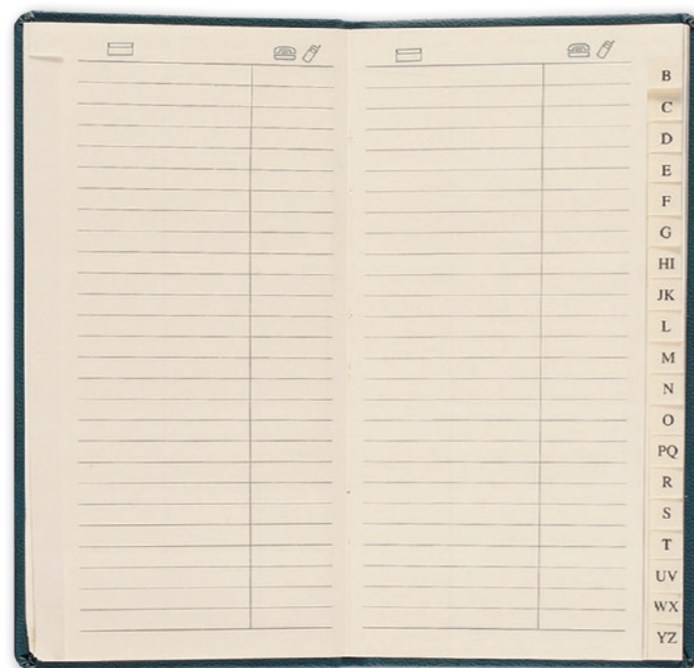 B
C
D
E
F
G
HI
JK
L
M
N
O
PQ
R
S
T
UV
WX
YZ